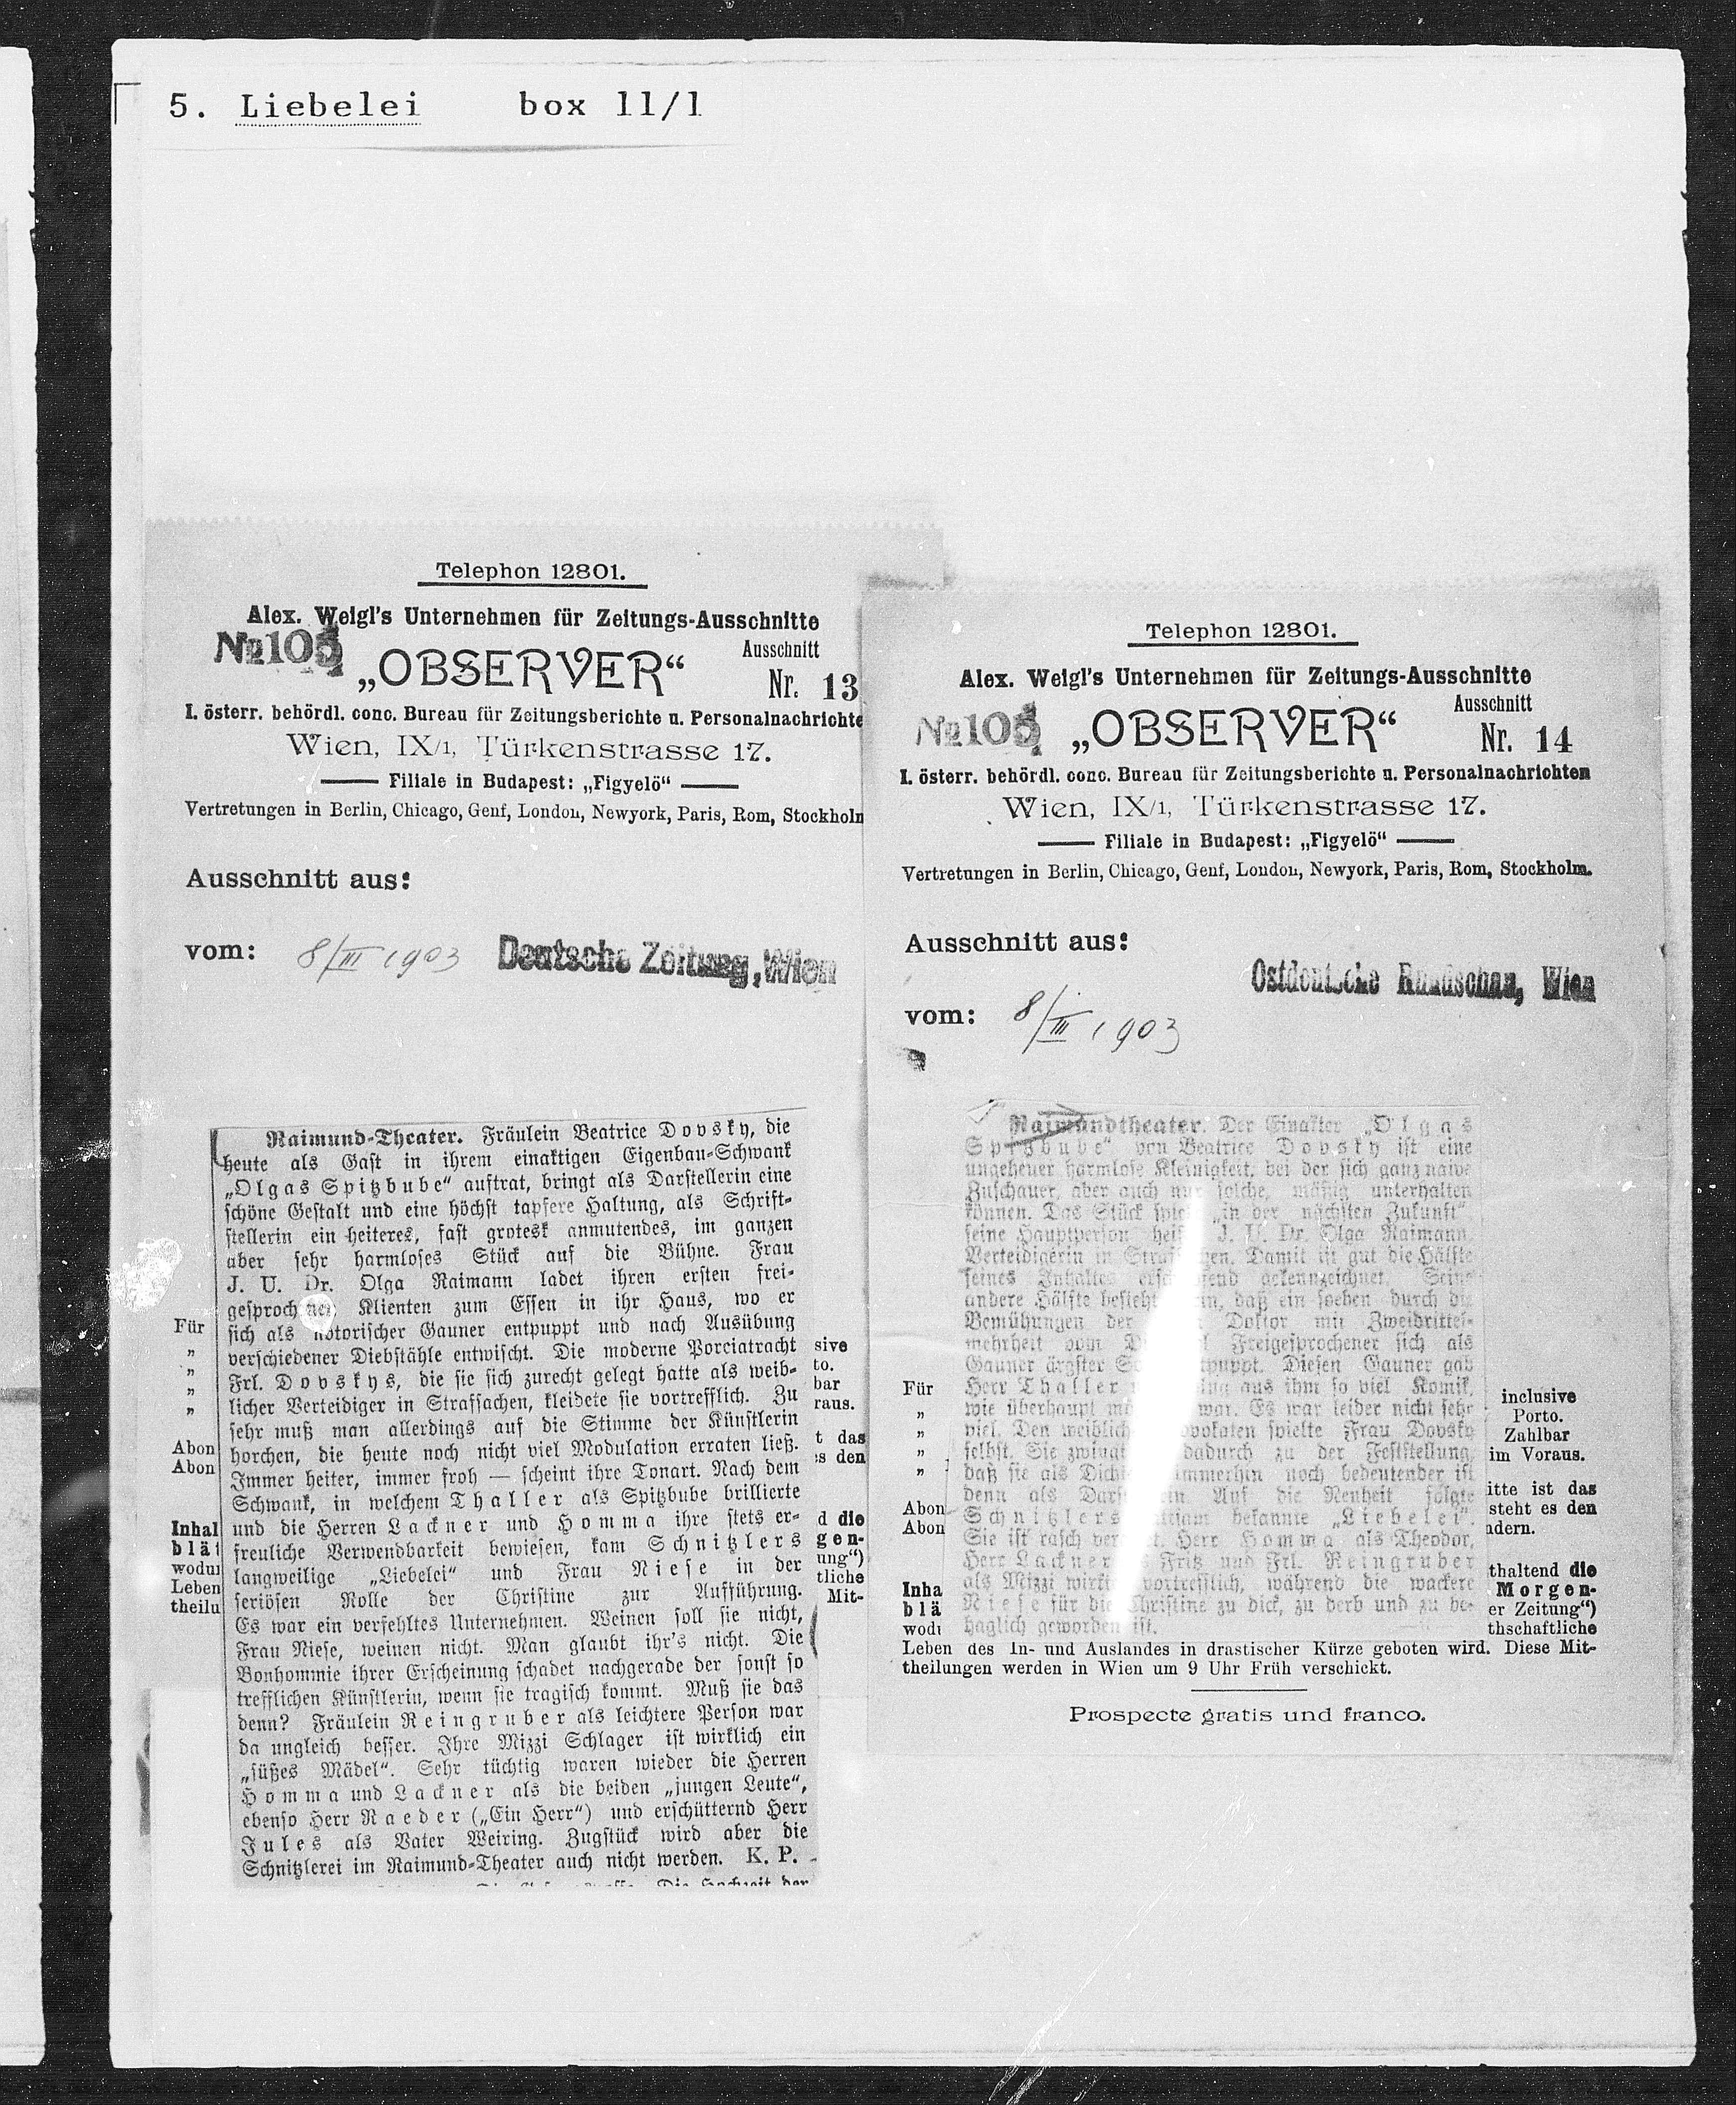 5. Liebelei box 11/1
Telephon 12801.
Alex. Weigl's Unternehmen für Zeitungs-Ausschnitte
№ 105
„OBSERVER“
Ausschnitt
Nr. 13
I. österr. behördl. conc. Bureau für Zeitungsberichte u. Personalnachrichte
Wien, IX/1, Türkenstrasse 17.
Filiale in Budapest: „Figyelö“
Vertretungen in Berlin, Chicago, Genf, London, Newyork, Paris, Rom, Stockholm
Ausschnitt aus:
vom: 8/III 1903 Deutsche Zeitung, Wien
Raimund-Theater. Fräulein Beatrice Dovsky, die
heute als Gast in ihrem einaktigen Eigenbau-Schwank
„Olgas Spitzbube“ auftrat, bringt als Darstellerin eine
schöne Gestalt und eine höchst tapfere Haltung, als Schrift-
stellerin ein heiteres, fast grotesk anmutendes, im ganzen
aber sehr harmloses Stück auf die Bühne. Frau
J. U. Dr. Olga Raimann ladet ihren ersten frei-
gesprochenen Klienten zum Essen in ihr Haus, wo er
sich als notorischer Gauner entpuppt und nach Ausübung
verschiedener Diebstähle entwischt. Die moderne Porciatracht
Frl. Dovskys, die sie sich zurecht gelegt hatte als weib-
licher Verteidiger in Strafsachen, kleidete sie vortrefflich. Zu
sehr muß man allerdings auf die Stimme der Künstlerin
horchen, die heute noch nicht viel Modulation erraten ließ.
Immer heiter, immer froh — scheint ihre Tonart. Nach dem
Schwank, in welchem Thaller als Spitzbube brillierte
und die Herren Lackner und Homma ihre stets er-
freuliche Verwendbarkeit bewiesen, kam Schnitzlers
langweilige „Liebelei“ und Frau Niese in der
seriösen Rolle der Christine zur Aufführung.
Es war ein verfehltes Unternehmen. Weinen soll sie nicht,
Frau Niese, weinen nicht. Man glaubt ihr's nicht. Die
Bonhommie ihrer Erscheinung schadet nachgerade der sonst so
trefflichen Künstlerin, wenn sie tragisch kommt. Muß sie das
denn? Fräulein Reingruber als leichtere Person war
da ungleich besser. Ihre Mizzi Schlager ist wirklich ein
„süßes Mädel“. Sehr tüchtig waren wieder die Herren
Homma und Lackner als die beiden „jungen Leute“,
ebenso Herr Raeder („Ein Herr“) und erschütternd Herr
Jules als Vater Weiring. Zugstück wird aber die
Schnitzlerei im Raimund-Theater auch nicht werden. K. P.
Für
„
„
„
„
Abon
Abon
Inhal
blät
wodur
Leben
theilu
sive
to.
bar
raus.
t das
s den
d die
gen-
ung“)
tliche
Mit-
Telephon 12801.
Alex. Weigl's Unternehmen für Zeitungs-Ausschnitte
№ 105
„OBSERVER“
Ausschnitt
Nr. 14
I. österr. behördl. conc. Bureau für Zeitungsberichte u. Personalnachrichten
Wien, IX/1, Türkenstrasse 17.
Filiale in Budapest: „Figyelö“
Vertretungen in Berlin, Chicago, Genf, London, Newyork, Paris, Rom, Stockholm.
Ausschnitt aus:
Ostdeutsche Rundschau, Wien
vom: 8/III 1903
Raimundtheater. Der Einakter „Olgas
Spitzbube“ von Beatrice Dovsky ist eine
ungeheuer harmlose Kleinigkeit, bei der sich ganz naive
Zuschauer, aber auch nur solche, mäßig unterhalten
können. Das Stück spie „in der nächsten Zukunft“
seine Hauptperson hei J. U. Dr. Olga Raimann,
Verteidigerin in Straf en. Damit ist gut die Hälfte
seines Inhaltes ersch end gekennzeichnet. Seine
andere Hälfte besteht in, daß ein soeben durch die
Bemühungen der Doktor mit Zweidrittel-
mehrheit vom Freigesprochener sich als
Gauner ärgster tpuppt. Diesen Gauner gab
Herr Thaller ing aus ihm so viel Komik,
wie überhaupt war. Es war leider nicht sehr
viel. Den weiblich vokaten spielte Frau Dovsky
selbst. Sie zwingt dadurch zu der Feststellung,
daß sie als Dicht immerhin noch bedeutender ist
denn als Darst in. Auf die Neuheit folgte
Schnitzlers tsam bekannte „Liebelei“.
Sie ist rasch ver t. Herr Homma als Theodor,
Herr Lackner s Fritz und Frl. Reingruber
als Mizzi wirkt vortrefflich, während die wackere
Niese für die Christine zu dick, zu derb und zu be-
haglich geworden ist.
Für
„
„
„
„
Abon
Abon
Inha
blä
wodu
inclusive
Porto.
Zahlbar
im Voraus.
itte ist das
steht es den
ndern.
thaltend die
Morgen-
er Zeitung“)
thschaftliche
Leben des In- und Auslandes in drastischer Kürze geboten wird. Diese Mit-
theilungen werden in Wien um 9 Uhr Früh verschickt.
Prospecte gratis und franco.